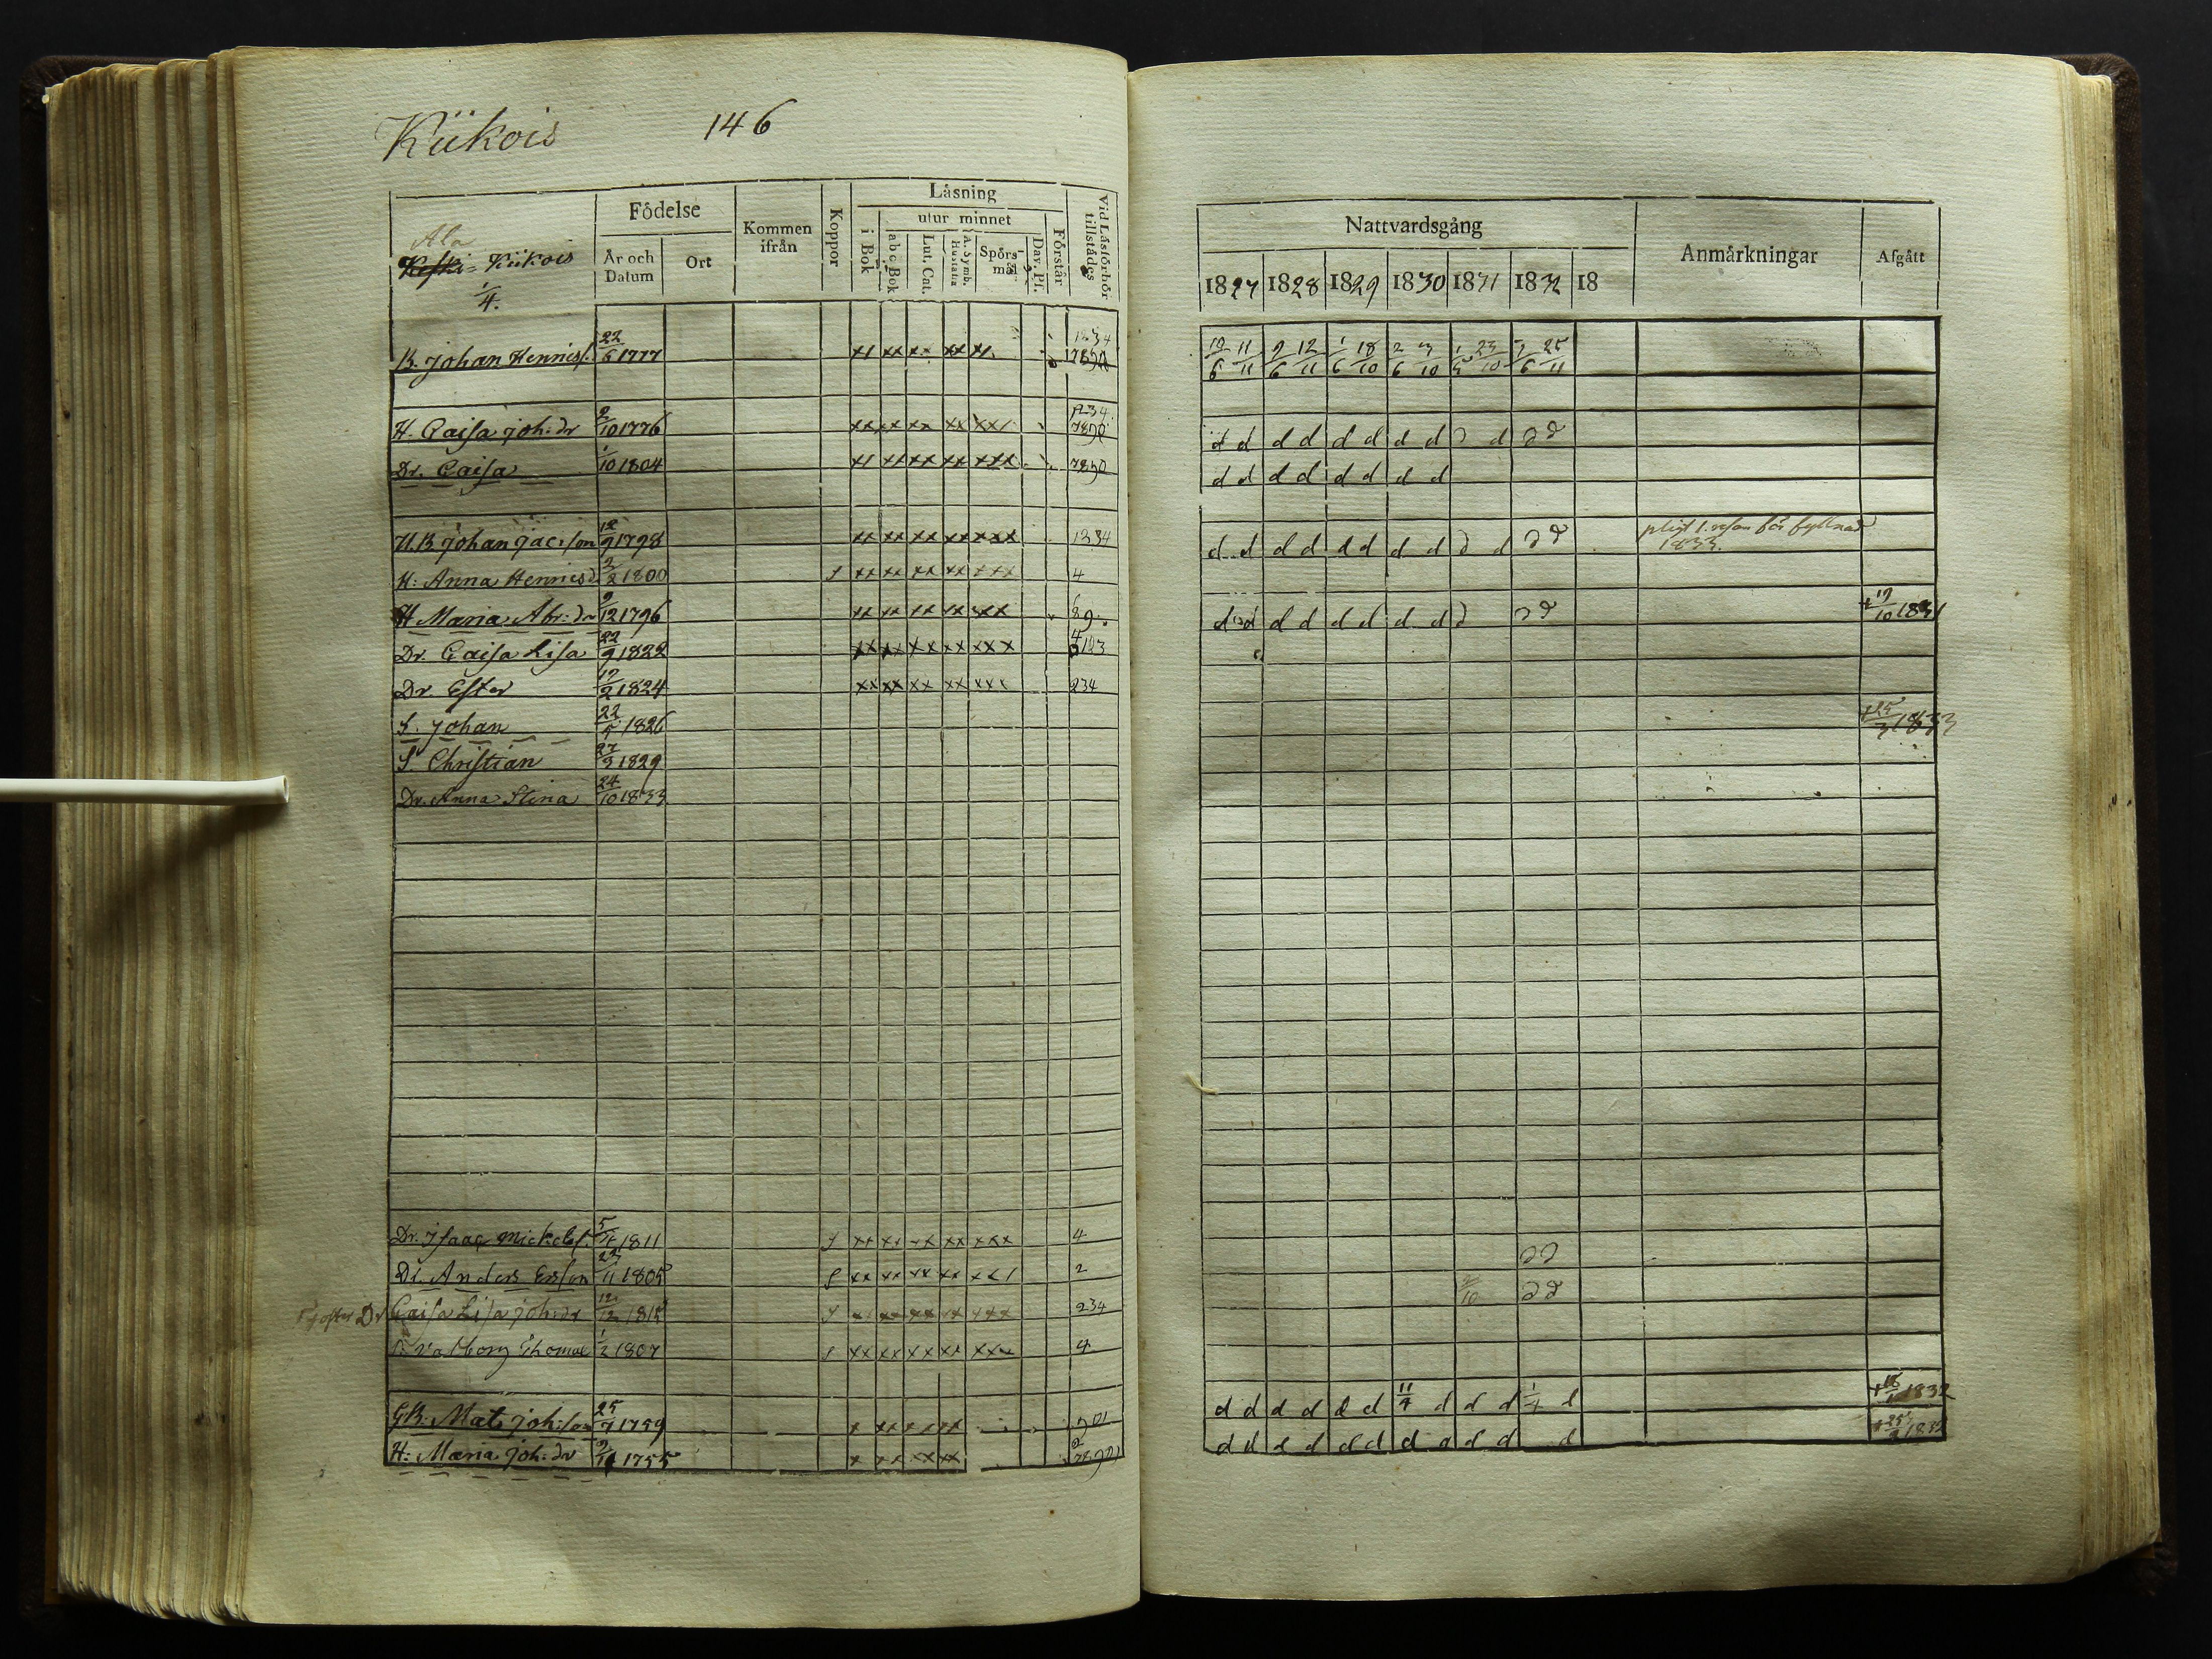 Kükois 146
Födelse
Kommen ifrån
Koppor
Låsning
i Bok
utur minnet
a b c Bok
Lut. Cat.
A. Symb. Hustafla
Spörsmål
Dav. Ps.
Förstår
Vid Läsförhör tillstädes
År och Datum
Ort
Ala
Keski= Kükois
1/4.
B. Johan Hennicss. 22/6 1777 xx xx xx xx xx 1234 7890
H. Caisa Joh:dr 2/10 1776 xx xx xx xx xxx 1234. 7890
Dr. Caisa 1/10 1804 xx xx xx xx xxx 7890
U.B Johan Jac:son 12/9 1798 xx xx xx xx xxx 1234
H: Anna Hennicsd. 2/2 1800 xx xx xx xx xxx 4
H Maria Abr:dr 9/12 1796 xx xx xx xx xxx 89.
Dr. Caisa Lisa 22/9 1822 xx xx xx xx xxx 4 123
Dr Ester 17/2 1824 xx xx xx xx xxx 234
S. Johan 22/5 1826
S. Christian 27/3 1829
Dr. Anna Stina 24/10 1833
Dr. Isaac Mickelss. 5/4 1811 xx xx xx xx xxx 4
Dr. Anders Ersson 23/11 1805 xx xx xx xx 2
foster Dr Caisa Lisa Joh:dr 12/12 1815 xx xx xx xxx 234
Valborg Thomae 1/2 1807 xx xx xx xx xxx 4
GB. Mats Joh:son 25/7 1759 x xx xx xx 901
H: Maria Joh:dr 1755 x xx xx xx 2 78901
Nattvardsgång
Anmärkningar
Afgått
1827 1828 1829 1830 1831 1832 18
19/6 11/11 9/6 12/11 1/6 18/10 2/6 3/10 1/5 23/10 3/6 25/11
d d d d d d d d d d d d
d d d d d d d d
d d d d d d d d d d d d pligt 1. resan för fyllnad 1833.
d d d d d d d d d d d + 19/10 1831
+ 25/3 1833
d d
/10 d d
d d d d d d 11/4 d d d 1/4 d + 1832
d d d d d d d d d d d + 25/2 1832